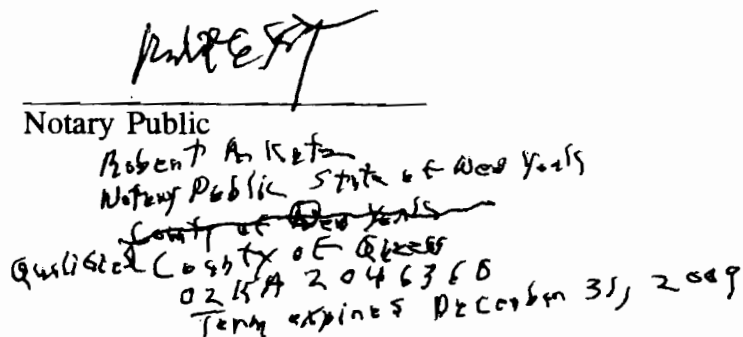 Notary Public
Robert A. Katz
Notary Public State of New York
County of New York
Qualified County of Queens
02KA 2046360
Term expires December 31, 2009